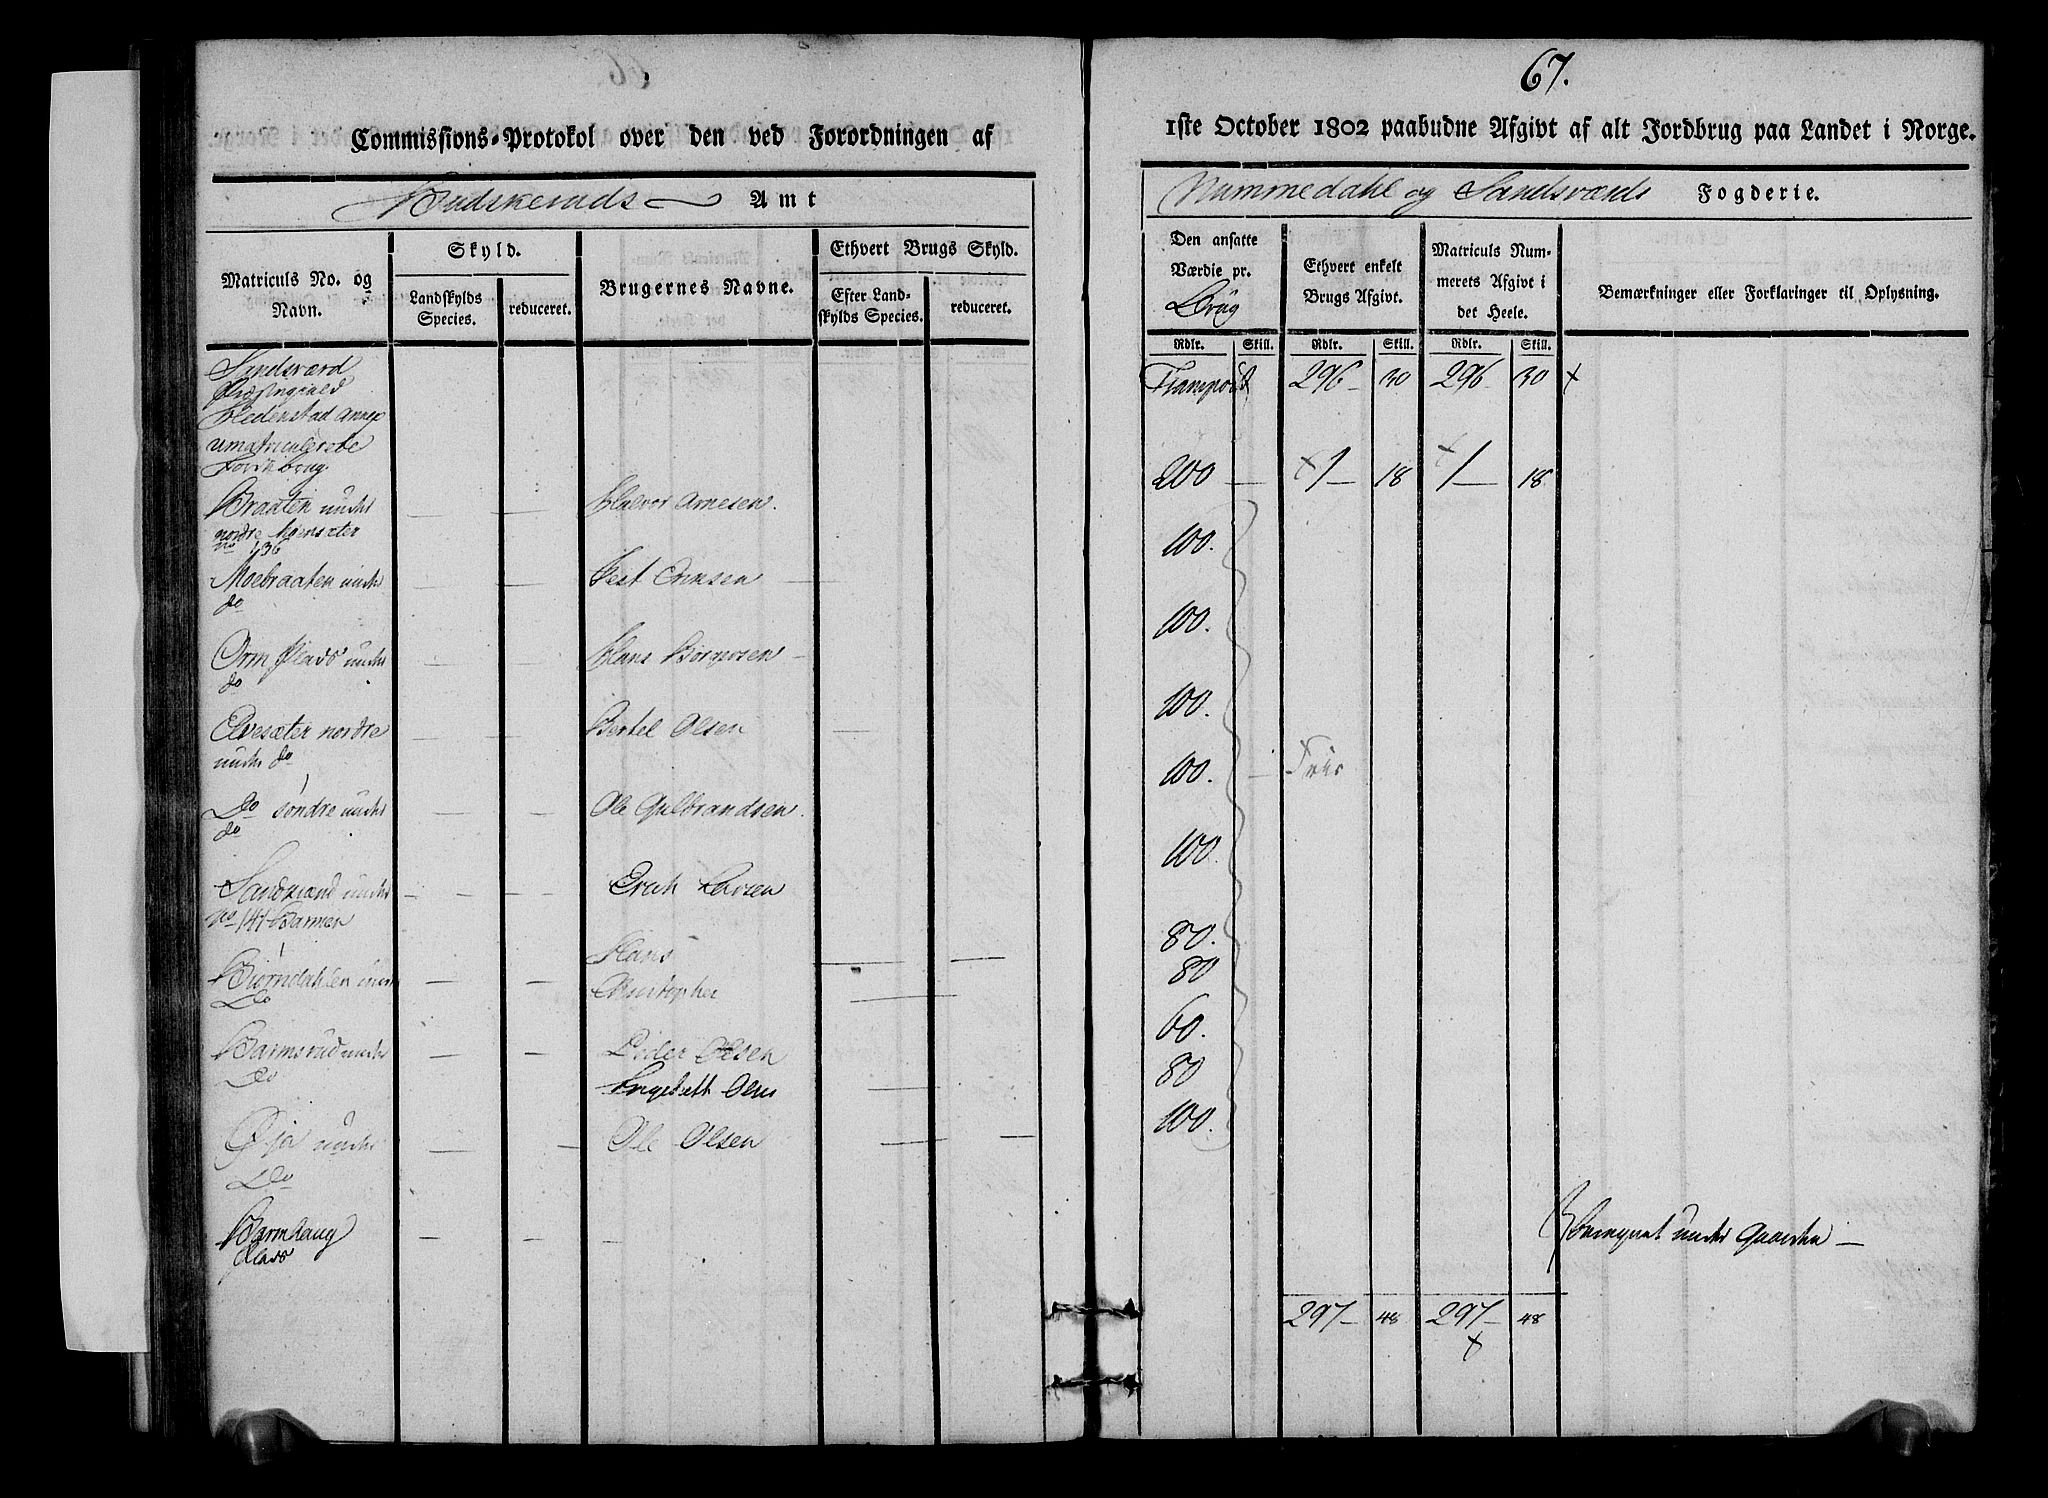 67.
Commissions-Protokol over den ved Forordningen af
1ste October 1802 paabudne Afgivt af alt Jordbrug paa Landet i Norge.
Budskeruds Amt
Nummedahl og Sandsværds Fogderie.
Matriculs No. og Navn.
Skyld.
Landskylds Species.
reduceret.
Brugernes Navne.
Ethvert Brugs Skyld.
Efter Landskylds Species.
reduceret.
Den ansatte Værdie pr. Brug
Ethvert enkelt Brugs Afgivt.
Matriculs Nummerets Afgivt i det Heele.
Bemærkninger eller Forklaringer til Oplysning.
Rdlr. Skill. Rdlr. Skill. Rdlr. Skill.
Sandsværd
Præstegield
Transport 296 30 296 30 x
Hedenstad annex
umatriculerede
Jordbrug
200 — 1 — 18 1 — 18
Braaten under — — Halvor Arnesen.
nordre Moensæter
no 136
100.
Moebraaten under — —
do
100.
Orm Plads under — — Hans
do
100.
Elvesæter nordre — — Bertel Olsen —
under do
100. — Frie
Do søndre under — — Ole Gulbrandsen.
do
100.
under — — Erich Larsen
No 141 Barmen
80.
Hans — —
80
Biørndahlen under — — Christopher — —
Do
60.
Barmsrud under — — Peder Olsen
Do
80
Engebrett Olsen —
100.
Øja under — — Ole Olsen — —
Do
Barmhaug — — —
Plads
under Gaarden —
297 — 48 297 — 48
x